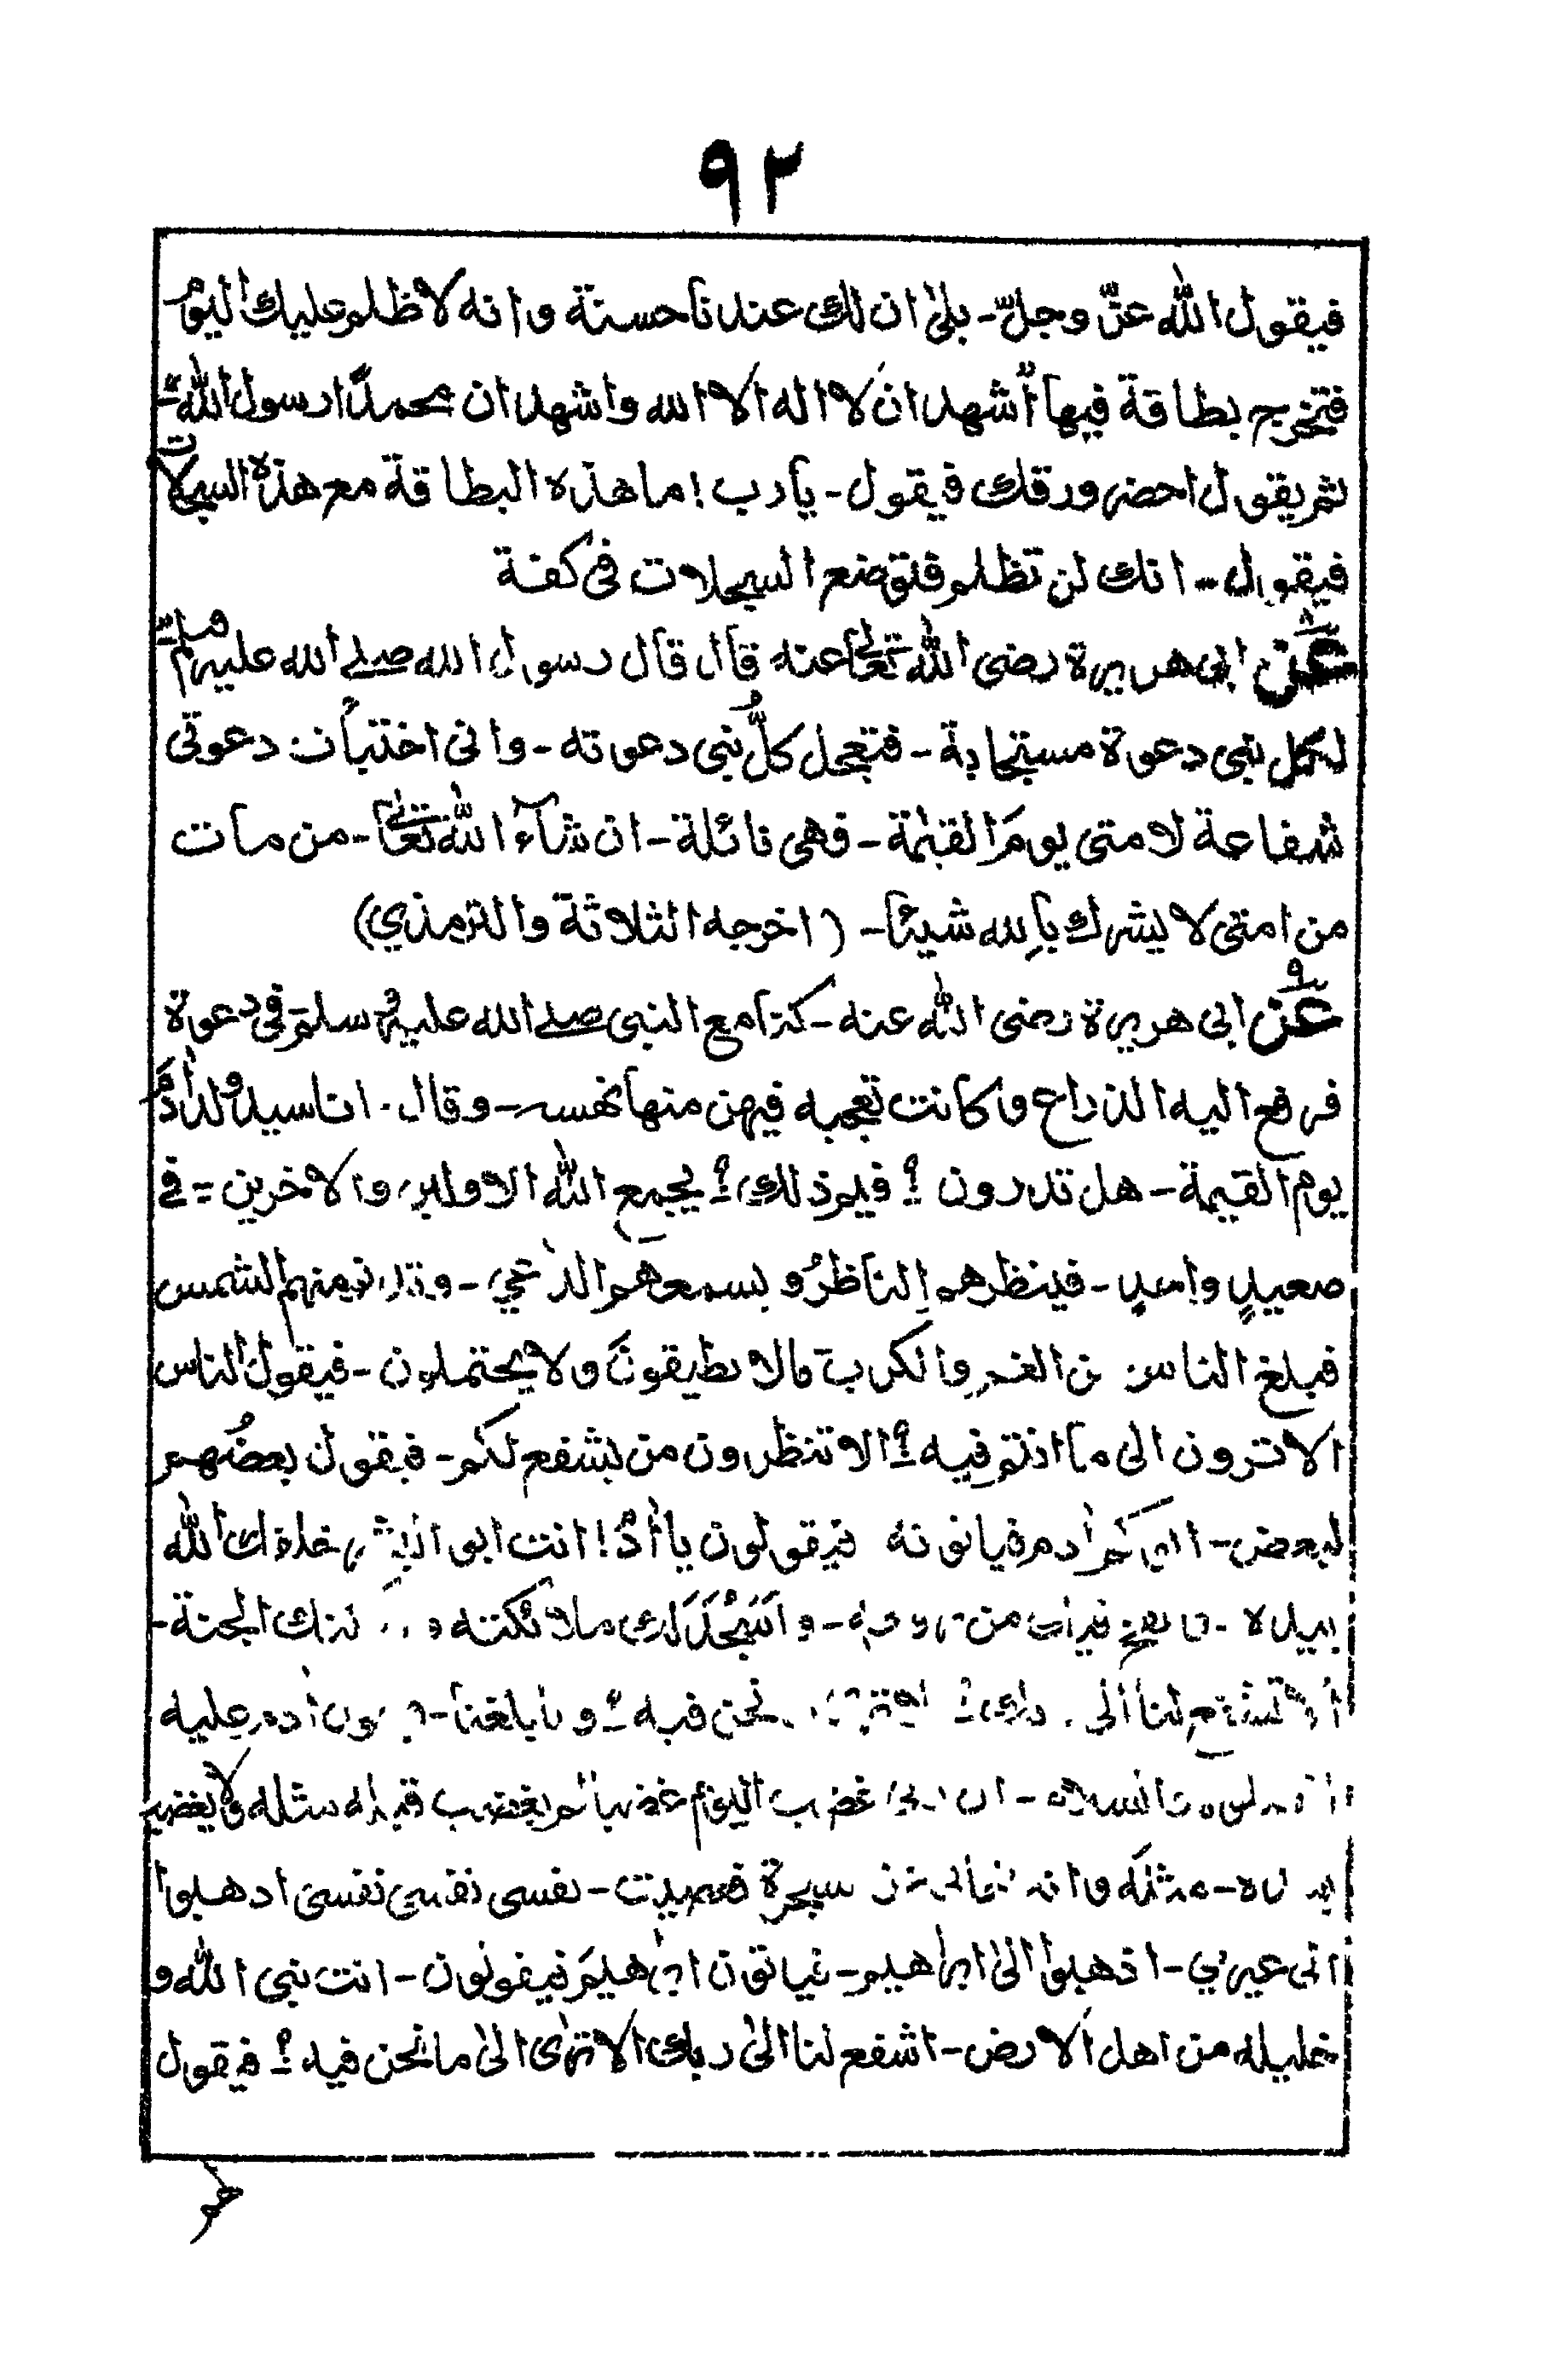 ٩٢
فيقول الله عزّ وجلّ - بلىٰ ان لك عندنا حسنة وانه لا ظلم عليك اليوم
فتخرج بطاقة فيها أشهد ان لا اله الا الله واشهد ان محمدًا رسول الله -
ثم يقول احضر ورقك فيقول - يا رب! ما هذه البطاقة مع هذه السجلات
فيقول - انك لن تظلم فتوضع السجلات فى كفة
عن ابى هريرة رضى الله تعالىٰ عنه قال قال رسول الله صلے الله عليه وسلم -
لكل نبى دعوة مستجابة - فتعجل كلُّ نبى دعوته - وانى اختبأت دعوتى
شفاعة لامتى يومَ القيٰمة - فهى نائلة - ان شآءَ الله تعالىٰ - من مات
من امتى لا يشرك بالله شيئا - (اخرجه الثلاثة والترمذي)
عن ابى هريرة رضى الله عنه - كنا مع النبى صلے الله عليه وسلم فى دعوة
فرفع اليه الذراع وكانت تعجبه فيهن منها نهسه - وقال - انا سيد ولد اٰدم
يوم القيمة - هل تدرون ؟ فيم ذلك ؟ يجمع الله الاولين والاخرين - فى
صعيدٍ واحدٍ - فينظرهم الناظرُ و يسمعهم الداعي - وتدنو منهم الشمس
فبلغ الناس من الغم والكرب مالا يطيقونَ ولا يحتملون - فيقول الناس
الا ترون الى ما انتم فيه ؟ الا تنظرون من يشفع لكم - فيقول بعضُهم
لبعض - ابوكم اٰدم فياتونه فيقولون يا اٰدم! انت ابو البشر خلقك الله
بيده - ونفخ فيك من روحه - واَسْجَدَ لك ملائكته الجنة -
ألا تشفع لنا الى ربك ؟ الا ترى نحن فيه ؟ وما بلغنا - اٰدم عليه
السلام - ان ربى غضب اليوم غضبا لم يغضب قبله مثله ولا يغضب
بعده - مثله وانه نهانى عن شجرة فعصيت - نفسى نفسى نفسى اذهبوا
الى غيري - اذهبوا الىٰ ابراهيم - فياتون ابرٰهيمَ فيقولون - انت نبى الله و
خليله من اهل الارض - اشفع لنا الىٰ ربك الا ترٰى الىٰ ما نحن فيه ؟ فيقول